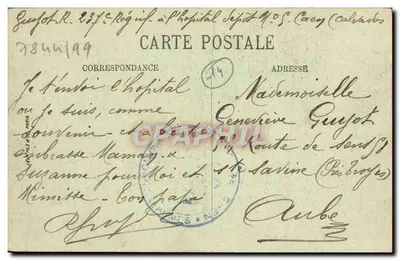 Guyot R. 237e Reg inf à l'hôpital depot No 5 Caen (Calvados
7844/99
CARTE POSTALE
14
CORRESPONDANCE
ADRESSE
Je t'envoi l'hopital
ou je suis, comme
souvenir
embrasse Maman &
Susanne pour Moi et
Mimisse - Ton papa
RGuyot
Mademoiselle
Geneviève Guyot
Route de sens
Ste Savine (Près Troyes)
Aube
CPAPHIL